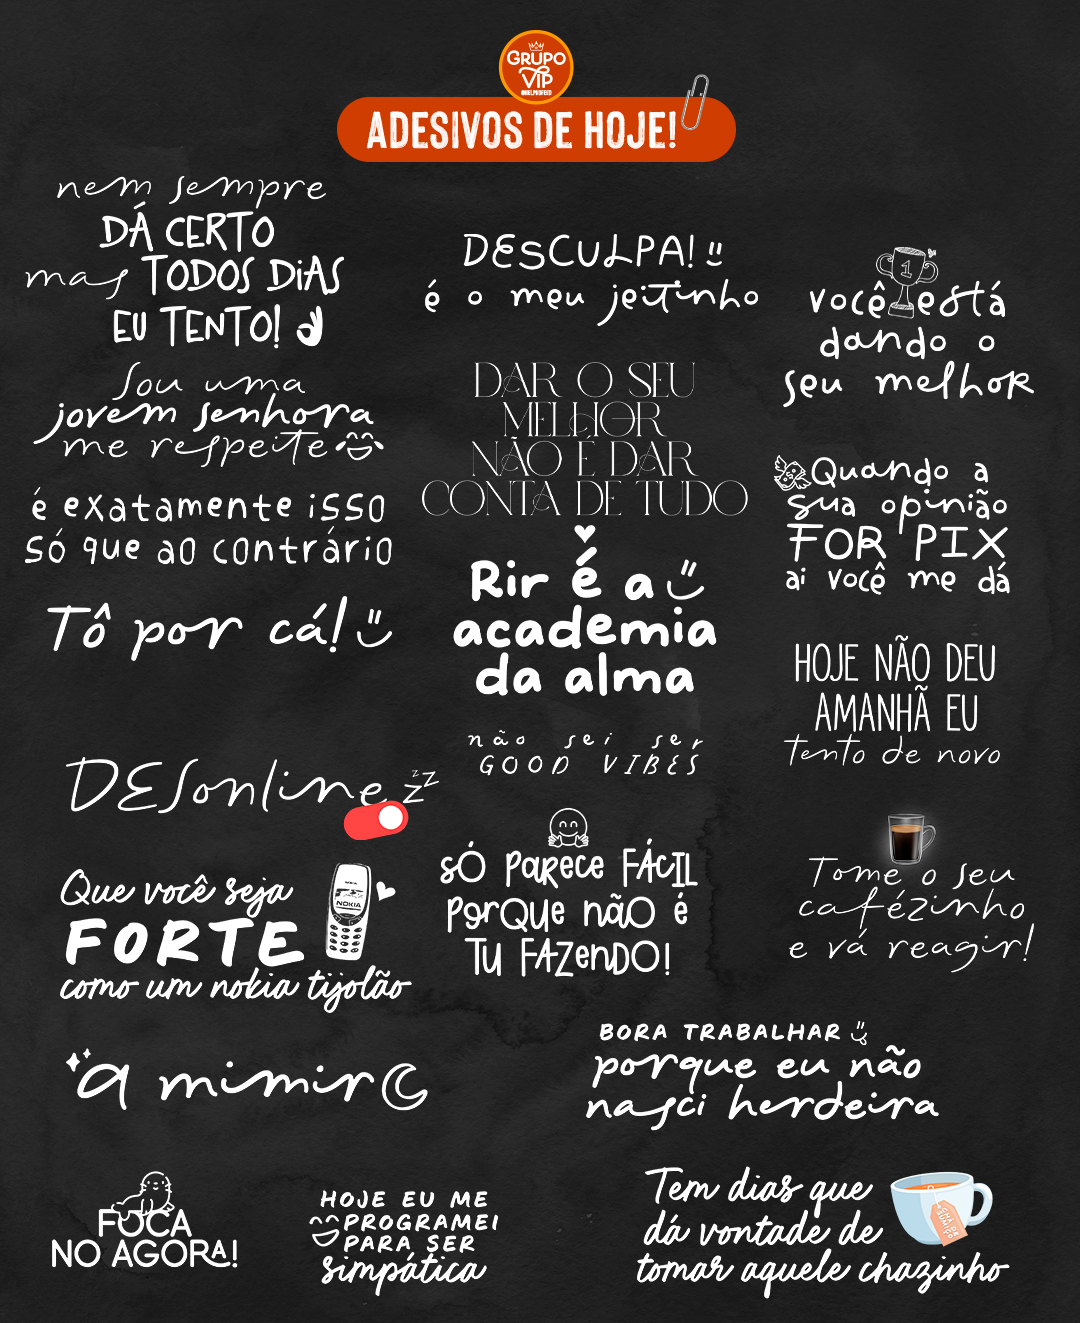 GRUPO
VIP
@HELPNOFEED
ADESIVOS DE HOJE!
nem sempre
DÁ CERTO
mas TODOS DiAS
EU TENTO!
sou uma
jovem senhora
me respeite
é exatamente isso
só que ao contrário
Tô por cá!
DESonline
zzz
Que você seja
FORTE
NOKIA
como um nokia tijolão
a mimir
FOCA
NO AGORA!
HOJE EU ME
PROGRAMEI
PARA SER
simpática
DESCULPA!
é o meu jeitinho
DAR O SEU
MELHOR
NÃO É DAR
CONTA DE TUDO
Rir é a
academia
da alma
não sei ser
GOOD VIBES
SÓ PARECE FÁCIL
PORQUE NÃO é
TU FAZENDO!
BORA TRABALHAR
porque eu não
nasci herdeira
1
você está
dando o
seu melhor
Quando a
sua opinião
FOR PIX
ai você me dá
HOJE NÃO DEU
AMANHÃ EU
tento de novo
Tome o seu
cafézinho
e vá reagir!
Tem dias que
dá vontade de
tomar aquele chazinho
CHÁ DE
SUMIÇO